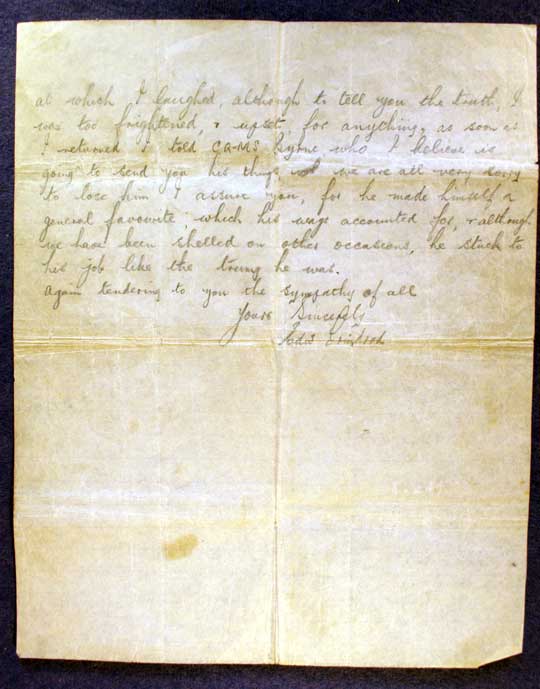 at which I laughed, although to tell you the truth, I
was too frightened, & upset for anything, as soon as
I returned I told CQ-MS Byrne who I believe is
going to send you his things we are all very sorry
to lose him I assure you, for he made himself a
general favourite, which his ways accounted for, & although
we have been shelled on other occasions, he stuck to
his job like the he was.
Again tendering to you the sympathy of all
Yours Sincerely